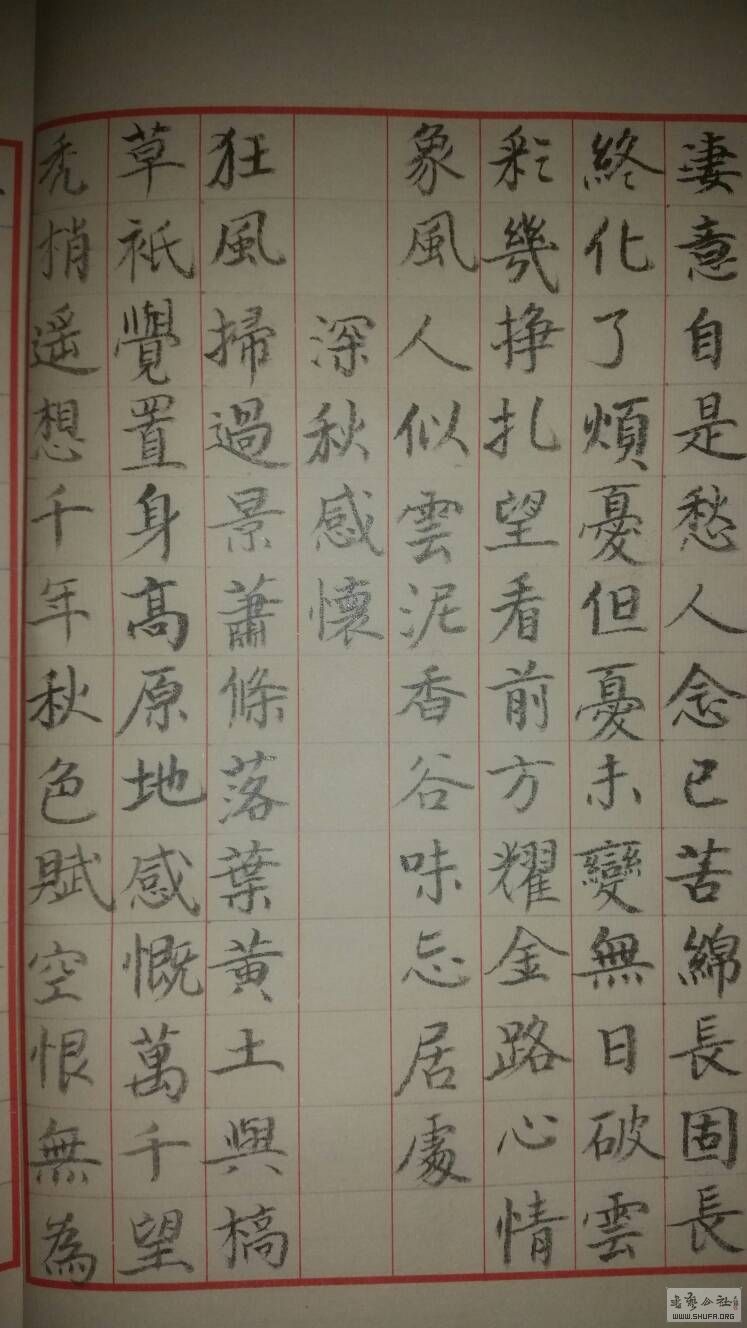 淒意自是愁人念已苦綿長固長
終化了煩憂但憂未變無日破雲
彩幾掙扎望看前方耀金路心情
象風人似雲泥香谷味忘居處
深秋感懷
狂風掃過景蕭條落葉黃土與槁
草衹覺置身高原地感慨萬千望
禿梢遥想千年秋色賦空恨無為
WWW.SHUFA.ORG